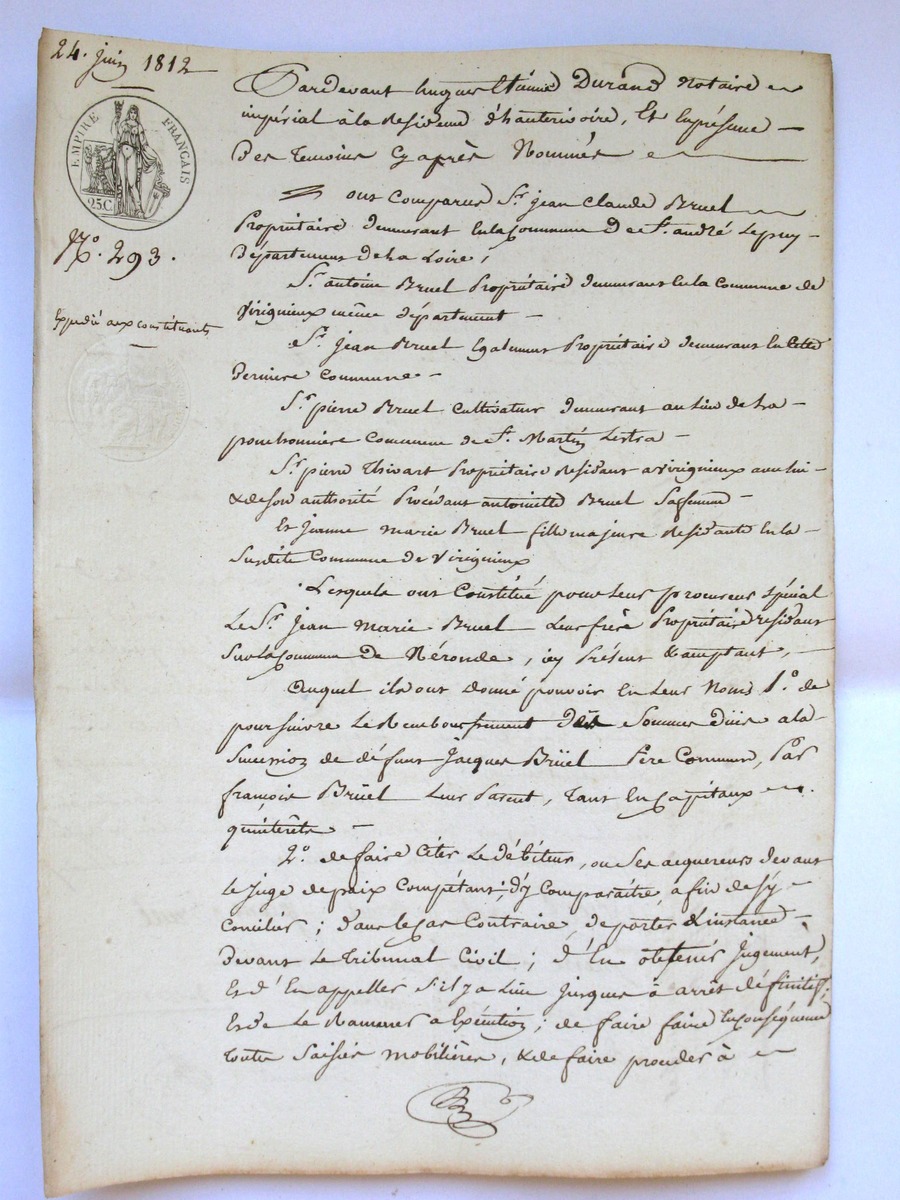 24. juin 1812
EMPIRE FRANÇAIS
25C.
N.o 293.
Expédié aux constituants
Pardevant hugues Etienne Durand Notaire
impérial à la Residence d'hauterivoire, Et En présence
Des temoins Cy après Nommés
Ont Comparus Sr. jean Claude Bruel
Propriétaire demeurant En la Commune de St. andré Lepuy
Département de La Loire;
Sr. antoine Bruel Propriétaire demeurant En la Commune de
Virigneux même département
Sr. jean Bruel Egalement Propriétaire demeurant En Cette
Derniere Commune
Sr. pierre Bruel Cultivateur demeurant au lieu de La
ponchonniere Commune de St. Martin Lestra
Sr. pierre Thivart Propriétaire Residant a Virigneux avec lui
& de son authorité Procédant antoinette Bruel Sa femme
Et jeanne marie Bruel fille majeure Residante En la
Susdite Commune de Virigneux
Lesquels ont Constitué pour Leur procureur Spécial
Le Sr. jean Marie Bruel Leur frère Propriétaire residant
Sur la Commune de Néronde, icy Présent & acceptant,
Auquel ils ont donné pouvoir En Leur Noms 1.o de
poursuivre Le Remboursement des Sommes Düës a la
Succession de défunt Jacques Brüel Père Commun, Par
françois Brüel Leur Parent, tant En Capitaux
qu'interêts
2.o de faire Citer Le débiteur, ou Ses acquereurs devant
Le juge de paix Compétant; d'y Comparaître, afin de s'y
Concilier; dans le Cas Contraire, de porter L'instance
Devant Le Tribunal Civil; d'En obtenir jugement,
Et d'En appeller S'il y a Lieu jusques à arrêt définitif;
Et de Le Ramener a Exécution; de faire faire En Conséquence
toutes Saisies mobilières, & de faire proceder à